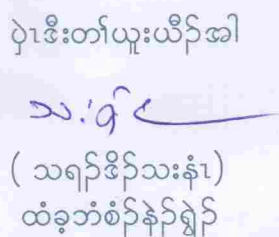 ပှဲၤဒီးတၢ်ယူးယီၣ်အါ
( သရၣ်ဒိၣ်သးနံၤ)
ထံခ့ဘံစံၣ်နဲၣ်ရွဲၣ်